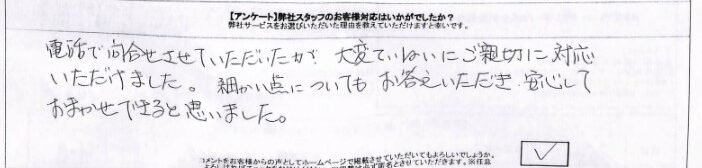 【アンケート】弊社スタッフのお客様対応はいかがでしたか？
弊社サービスをお選びいただいた理由を教えていただけますと幸いです。
電話で問合せさせていただいたが、大変ていねいにご親切に対応
いただけました。細かい点についても お答えいただき、安心して
おまかせできると思いました。
コメントをお客様からの声としてホームページで掲載させていただいてもよろしいでしょうか。